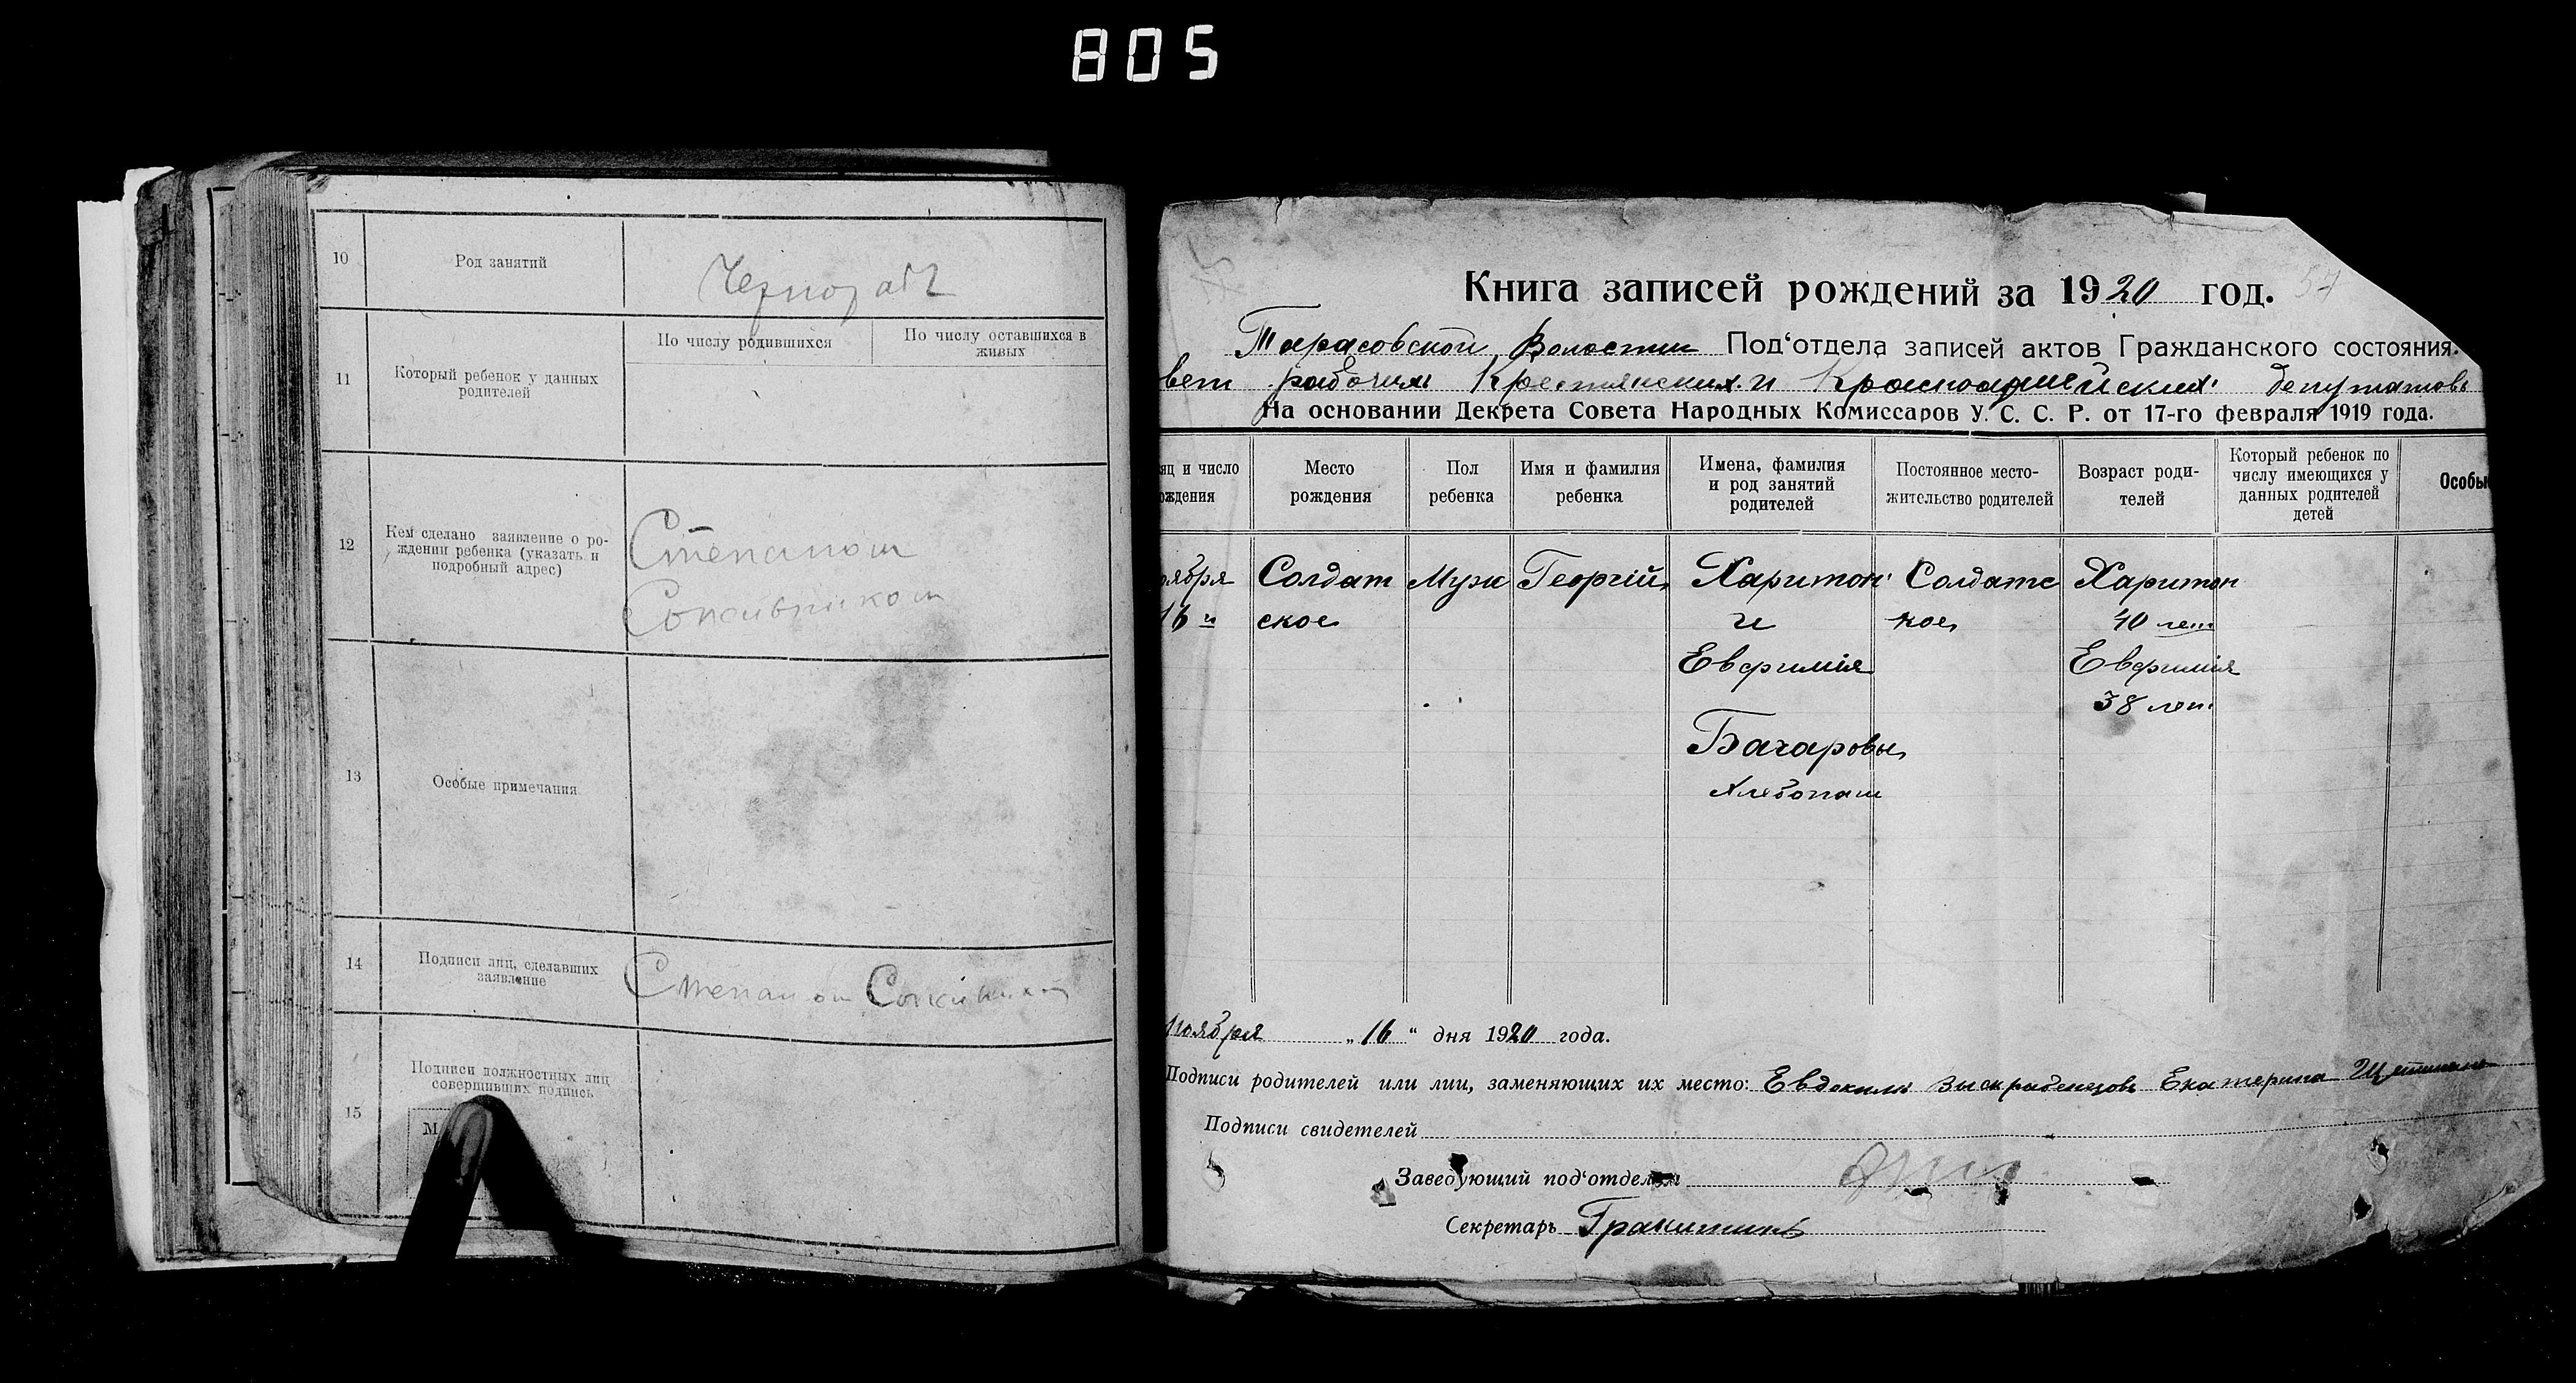 805
10
Род занятий
Чернораб
11
Который ребенок у данных
родителей
По числу родившихся
По числу оставшихся в
живых
12
Кем сделано заявление о ро-
ждении ребенка (указать и
подробный адрес)
Степаном
13
Особые примечания
14
Подписи лиц, сделавших
заявление
Степаном
15
Подписи должностных лиц
совершивших подпись
М
57
Книга записей рождений за 1920 год.
Тарасовской Волости Под'отдела записей актов Гражданского состояния.
вет рабочих Крестьянских и Красноармейских депутатовъ
На основании Декрета Совета Народных Комиссаров У. С. С. Р. от 17-го февраля 1919 года.
яц и число
ождения
Место
рождения
Пол
ребенка
Имя и фамилия
ребенка
Имена, фамилия
и род занятий
родителей
Постоянное место-
жительство родителей
Возраст роди-
телей
Который ребенок по
числу имеющихся у
данных родителей
детей
Особы
оября
16 го
Солдат
ское
Муж
Георгій
Харитон
и
Евфимія
Бачаровы
Хлебопаш
Солдатс
кое
Харитон
40 лет
Евфимія
38 лет
Ноября „16“ дня 1920 года.
Подписи родителей или лиц, заменяющих их место: Евдоким Екатерина
Подписи свидетелей
Заведующий под'отделом
Секретарь